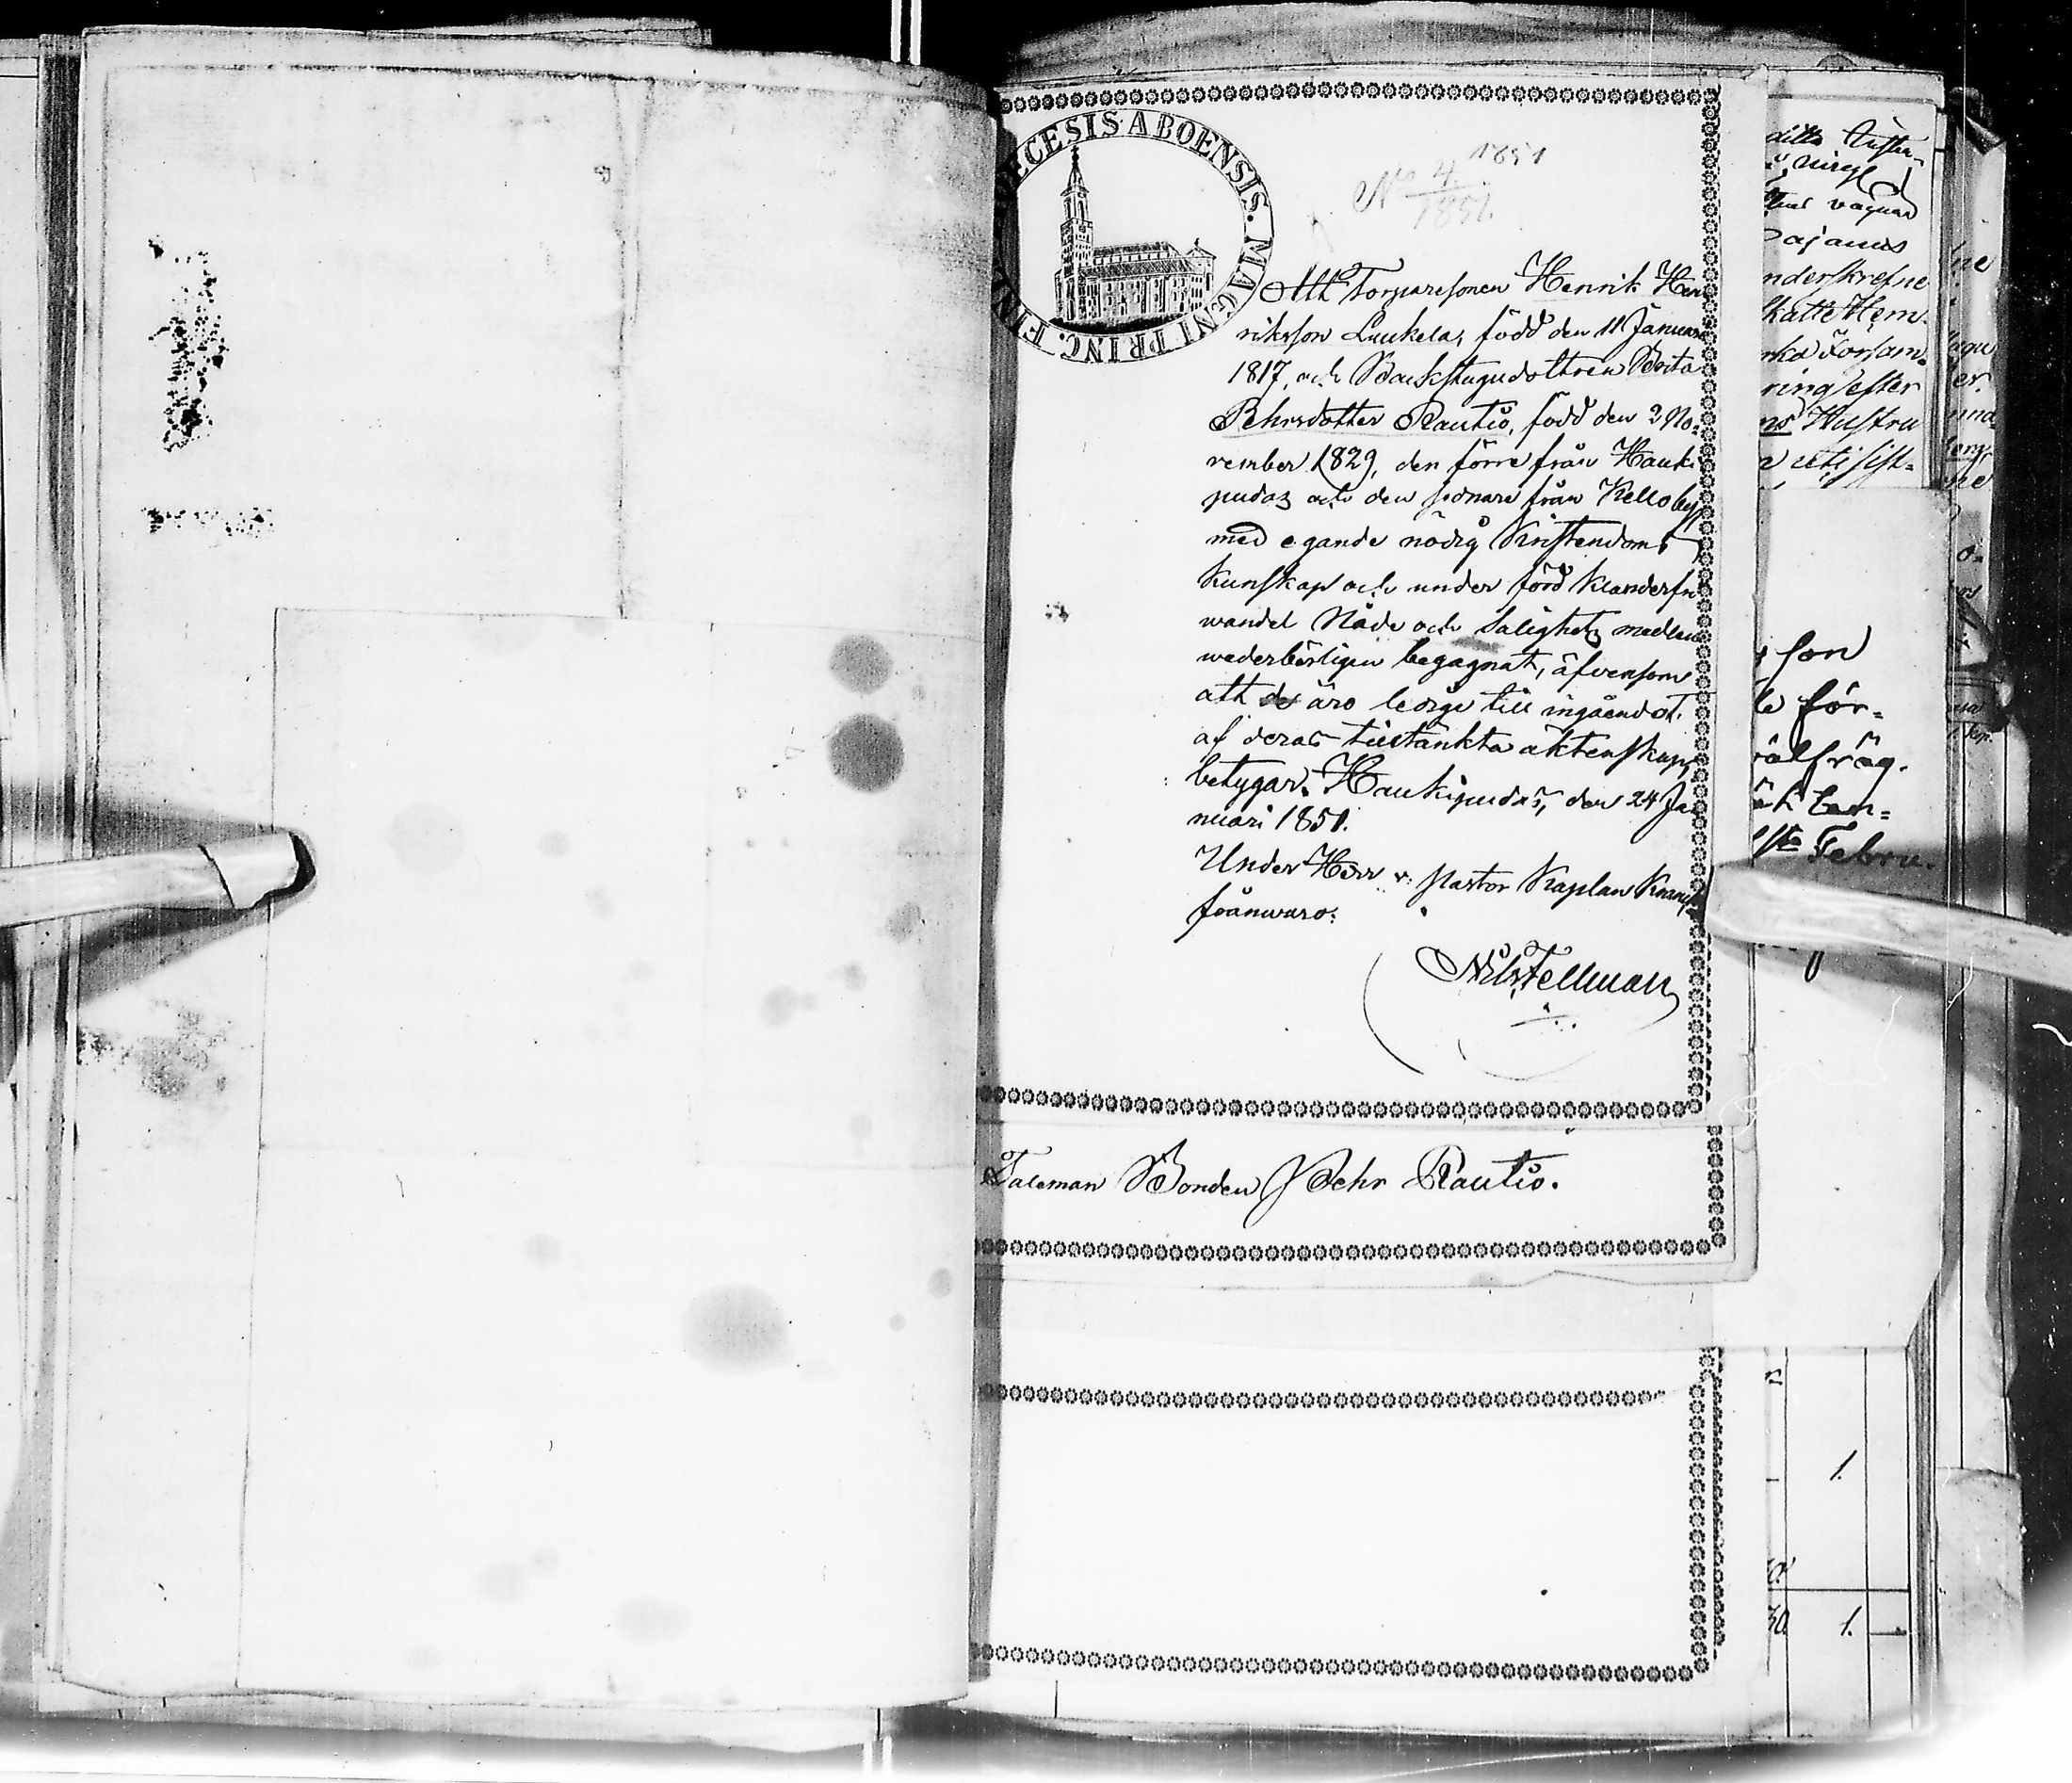 DIOECESIS ABOENSIS. MAGNI PRINC. FINL.
1851
No 4.
1851.
Att Torparesonen Henrik Hen
riksson Luukela, född den 11 Januari
1817, och Backstugudottren Brita
Pehrsdotter Rautio, född den 3 No-
vember 1829, den förre från Hauki
pudas och den sednare från Kello by
med egande nödig Kristendoms
kunskap och under förd klanderfri
wandel Nåde och Salighets medlen
wederbörligen begagnat, äfvensom
att de äro ledige till ingåendet
af deras tilltänkta äktenskap,
betygar. Haukipudas, den 24 Ja
nuari 1851.
Under Herr v. pastor Kaplan
frånwaro:
Nils Fellman
Taleman Bonden Pehr Rautio.
ajanas
nderskrefne
Hustru
son
för-
Febru.
1.
1.